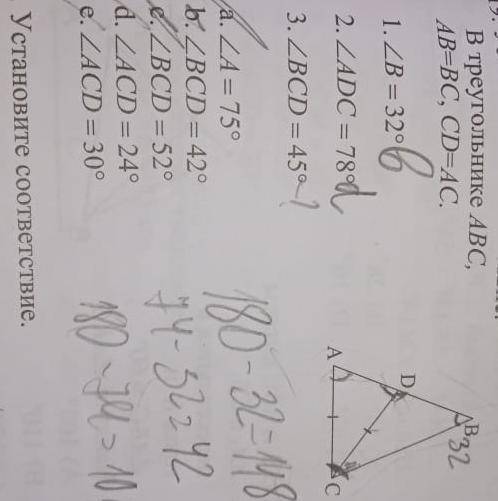 В треугольнике ABC,
AB=BC, CD=AC.
1. ∠B = 32° b
2. ∠ADC = 78° d
3. ∠BCD = 45° - ?
a. ∠A = 75°
b. ∠BCD = 42°
c. ∠BCD = 52°
d. ∠ACD = 24°
e. ∠ACD = 30°
Установите соответствие.
B 32
D
A
C
180 - 32 = 148
74 - 32 = 42
180 - 74 = 10